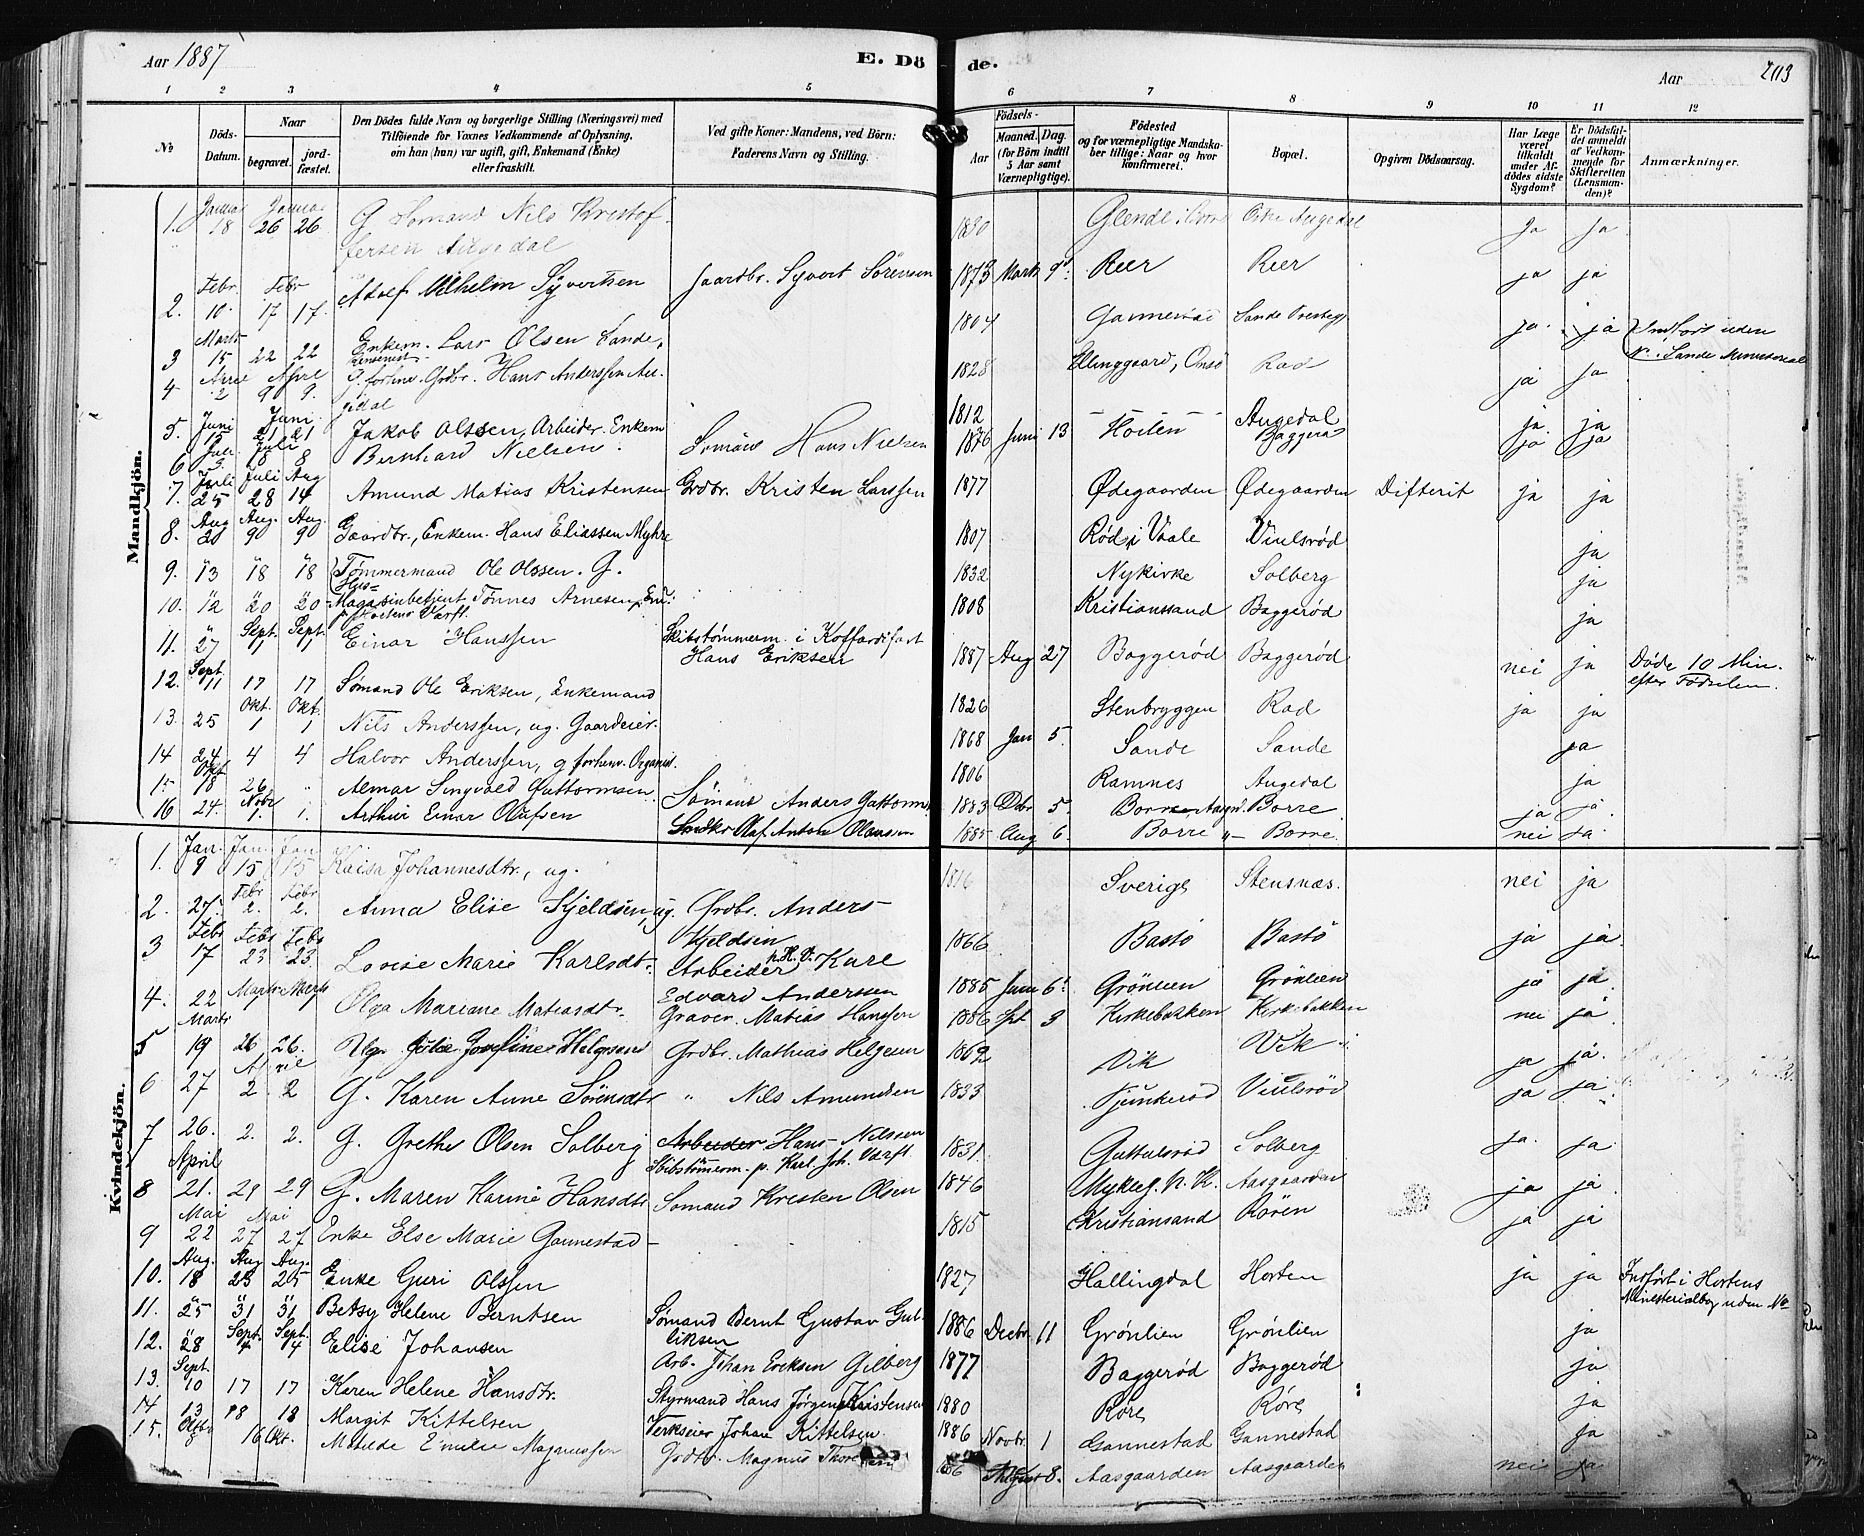 Aar 1887
E. Dö de.
Aar
203
1 2 3 4 5 6 7 8 9 10 11 12
No
Döds-Datum.
Naar
begravet.
jord-fæstet.
Den Dödes fulde Navn og borgerlige Stilling (Næringsvei) med
Tilföiende for Voxnes Vedkommende af Oplysning,
om han (hun) var ugift, gift, Enkemand (Enke)
eller fraskilt.
Ved gifte Koner: Mandens, ved Börn:
Faderens Navn og Stilling.
Födsels-
Aar
Maaned. Dag.
(for Börn indtil
5 Aar samt
Værnepligtige).
Födested
og for værnepligtige Mandska-
ber tillige: Naar og hvor
konfirmeret.
Bopæl.
Opgiven Dödsaarsag.
Har Læge
været
tilkaldt
under Af-
dödes sidste
Sygdom?
Er Dödsfal-
det anmeldt
af Vedkom-
mende for
Skifteretten
(Lensman-
den)?
Anmærkninger.
Mandkjön.
1. Januar 18 Januar 26 26 G Sömand Nils Kristof- 1830 Ja Ja
fersen Augedal
2. Febr. 10. Febr 17 17. Adolf Vilhelm Syvertsen Gaardbr. Syvert Sörensen 1873 Marts 9. Reer Reer ja ja
3 Marts 15 22 22 Enkem. Lars Olsen Sande, 1804 Sande ja ja Indfört uden
No. i Sande Ministerial
4 April 2 April 9 9. forhenv. Grdbr. Hans Anderssen Au- 1828 Ellinggaard, Onsö Rad ja ja
gedal
5. Juni 15 Juni 21 21 Jakob Olssen, Arbeider. Enkem 1812 Augedal ja ja
6 Juli 3. Juli 8 8 Bernhard Nielsen. Sömand Hans Nielsen 1876 Juni 13 Horten Baggeröd ja ja
7. Juli 25 Juli 28 Aug 14 Amund Matias Kristensen Grdbr. Kristen Larssen 1877 Ødegaarden Ødegaarden Difterit ja ja
8. Aug Aug. Aug. Gaardbr., Enkem. Hans Eliassen Myhre 1807 Rød i Vaale Viulsrød ja
9. 13 18 18 Tømmermand Ole Olssen. G. 1832 Nykirke Solberg ja
10. 12 20 20 Magasinbetjent Tönnes Arnesen, Enk. 1808 Kristianssand Baggerød ja
p. Hortens Værft.
11. 27 Sept. 1 Sept. 1 Einar Hanssen Skibstømmerm. i Koffardifart 1887 Aug 27 Baggerød Baggerød nei ja Døde 10 Min.
Hans Eriksen efter Fødselen.
12. Sept. 11 17 17 Sømand Ole Eriksen, Enkemand 1826 Stenbryggen Rad ja ja
13. 25 Okt. 1 Okt. 1 Nils Anderssen, ug. Gaardeier. 1868 Jan 5. Sande Sande ja
14 24 4 4 Halvor Anderssen, g forhenv. Organist. 1806 Ramnes Augedal ja
15 Okt. 18 26 " Almar Singvald Guttormsen Sömand Anders Guttorms. 1883 Dcbr 5 Borre Borre ja ja
16 24. Novbr 1. 1. Arthur Einar Olafsen Olaf Anton Olaussen 1885 Aug 6. Borre Borre nei ja
Kvindekjön.
1. Jan. 9 Jan. 15 Jan 15 Kaisa Johannesdtr., ug. 1816 Sverige Stensnæs. nei ja
2. 27. Febr 2. Febr. 2. Anna Elise Kjeldsen, ug. Grdbr. Anders 1866 Bastö Bastö ja ja
Kjeldsen
3 Febr 17 Febr 23 Febr 23. Lovise Marie Karlsdtr. Arbeider p. H. V. Karl 1885 Juni 6. Grönlien Grönlien ja ja
Edvard Anderssen
4. 22 Marts Marts Olga Mariane Matiasdtr. Graver. Matias Hanssen 1886 Spt 3 Kirkebakken Kirkebakken nei ja
5 Marts 19 26 26. Julie Josefine Helgesen Grdbr. Mathias Helgesen 1862 Vik Vik ja ja.
6 27 April 2 2 G. Karen Anne Sörensdtr " Nils Amundsen 1833 Viulsröd ja ja
7 26. 2. 2. G. Grethe Olsen Solberg Arbeider Hans Nilssen 1831. Solberg ja. ja
Skibstömerm. p. Karl. Joh. Værft.
8 April 21. 29 29 G. Maren Karine Hansdtr. Sömand Kristen Olsen 1846 Aasgaarden ja ja
9 Mai 22 Mai 27 27 Enke Else Marie Gannestad 1815 Kristiansand Rören ja ja
10. Aug. 18 Aug 23 Aug. 25 Enke Guri Olssen 1827 Hallingdal Horten ja ja Indført i Hortens
Ministerialbog uden No
11. 25 31 31 Betsy Helene Berntsen Sømand Bernt Gustav Gul- 1886 Decbr. 11 Grönlien Grönlien ja
liksen
12. 28 Sept. 4 Sept. 4 Elise Johansen Arb. Johan Eriksen Gilberg 1877 Baggerød Baggerød ja
13. Sept. 10 17 17 Karen Helene Hansdtr. Styrmand Hans Jørgen Kristensen 1880 Røre Røre ja
14 13 18 18 Margit Kittelsen Verkseier Johan Kittelsen. 1886 Novbr. 1 Gannestad Gannestad ja
15. Oktbr 8 16 Okt. Matilde Emilie Magnussen Grdbr. Magnus 1886 August 8. Aasgaarden Aasgaarden nei ja